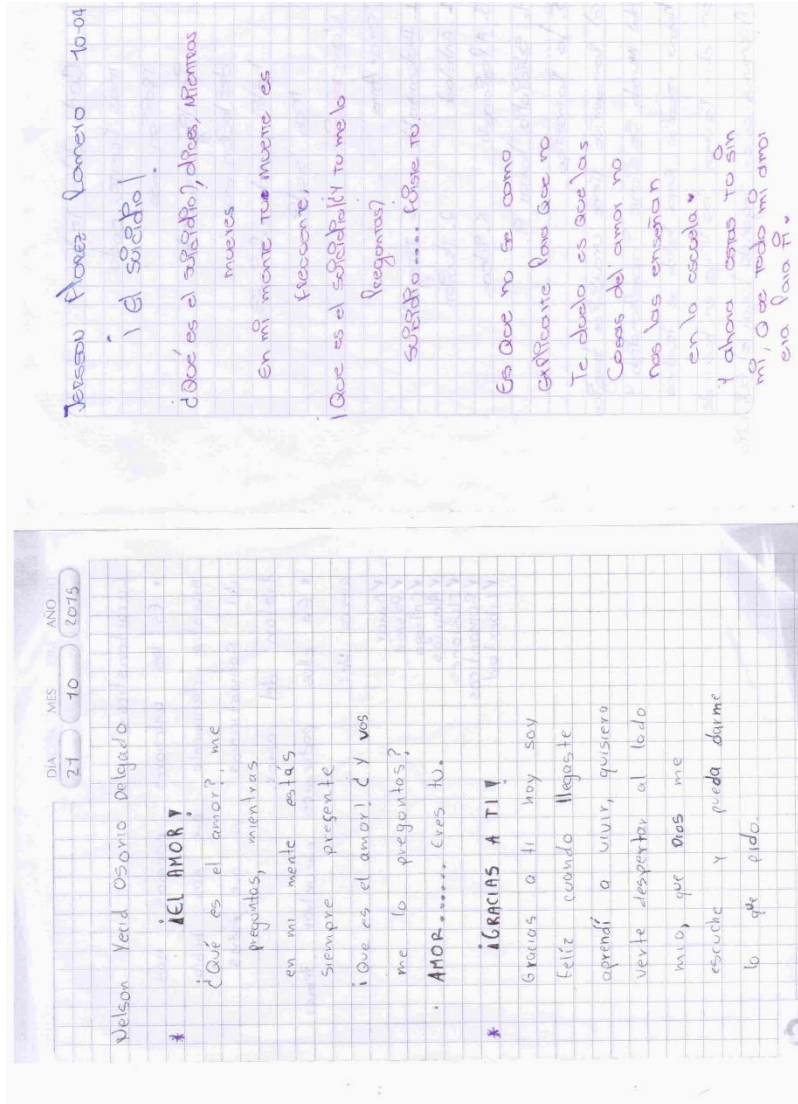 DÍA MES AÑO
21 10 2015
Nelson Yecid Osorio Delgado
* ¡EL AMOR!
¿Qué es el amor?, me
preguntas, mientras
en mi mente estás
siempre presente
¡Que es el amor! ¿Y vos
me lo preguntas?
AMOR...... Eres tú.
* ¡GRACIAS A TI!
Gracias a ti hoy soy
feliz cuando llegaste
aprendí a vivir, quisiera
verte despertar al lado
mio, que Dios me
escuche y pueda darme
lo que pido.
Jersson Florez Romero 10-04
¡El suicidio!.
¿Qué es el suicidio?, dices, Mientras
mueres
En mi mente tu muerte es
frecuente,
¡Que es el suicidio! ¿Y tu me lo
Preguntas?
suicidio.... fuiste tú.
Es Que no se como
explicarte Para Que no
Te duela es que las
Cosas del amor no
nos las enseñan
en la escuela
Y ahora estas tu sin
mi, O se todo mi amor
era Para ti